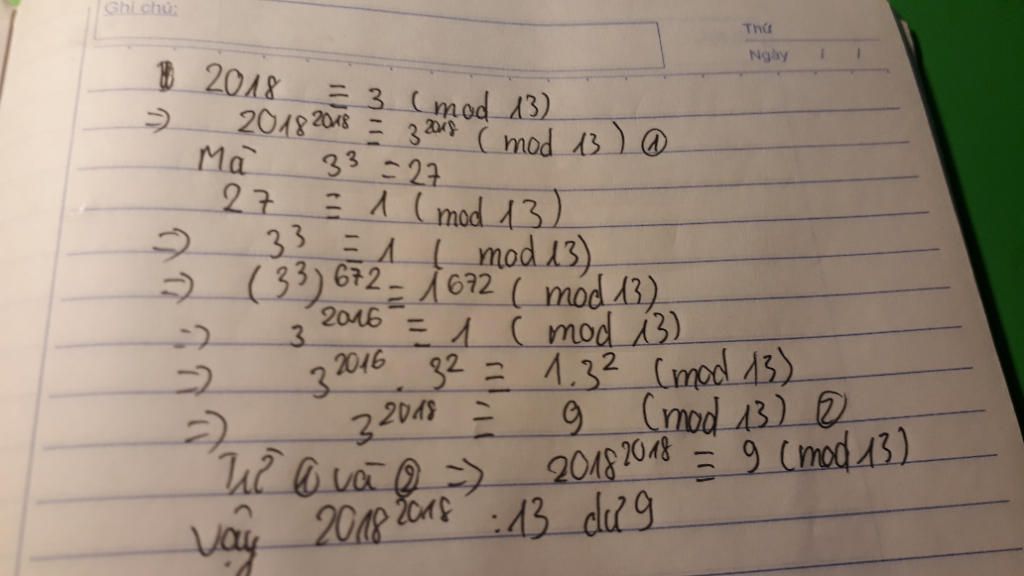 Ghi chú:
Thứ
Ngày / /
2018 ≡ 3 (mod 13)
=> 2018^2018 ≡ 3^2018 (mod 13) ①
Mà 3^3 = 27
27 ≡ 1 (mod 13)
=> 3^3 ≡ 1 ( mod 13)
=> (3^3)^672 ≡ 1^672 ( mod 13)
=> 3^2016 ≡ 1 ( mod 13)
=> 3^2016 . 3^2 ≡ 1.3^2 (mod 13)
=> 3^2018 ≡ 9 (mod 13) ②
Từ ① và ② => 2018^2018 ≡ 9 (mod 13)
Vậy 2018^2018 : 13 dư 9